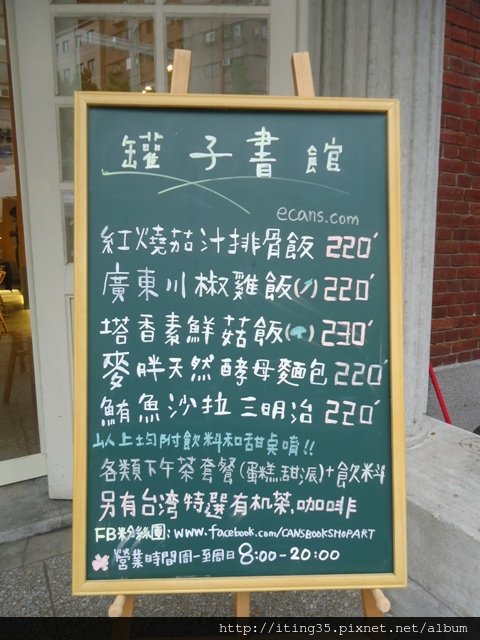 罐子書館
ecans.com
紅燒茄汁排骨飯 220'
廣東川椒雞飯( ) 220'
塔香素鮮菇飯( ) 230'
麥胖天然酵母麵包 220'
鮪魚沙拉三明治 220'
以上均附飲料和甜桌唷!!
各類下午茶套餐(蛋糕.甜派)+飲料
另有台湾特選有机茶.咖啡
FB粉絲團:www.facebook.com/CANSBOOKSHOPART
營業時間周一至周日 8:00-20:00
http://iting35.pixnet.net/album